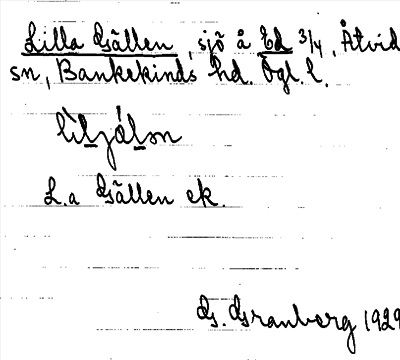 Lilla Gällen, sjö å Ed 3/4, Åtvid
sn, Bankekinds hd. Ögl. l.
lìljálsn
L.a Gällen ek.
G. Granberg 1929